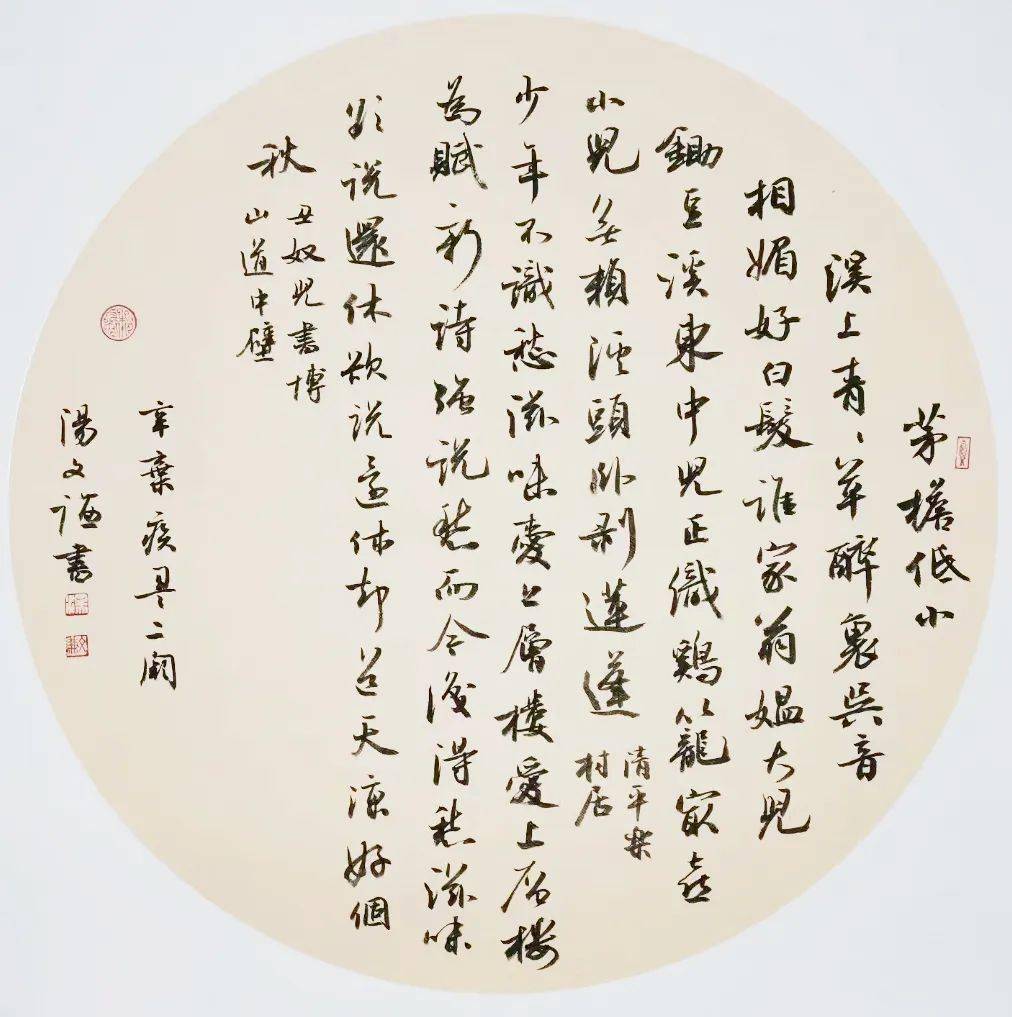 茅檐低小
溪上青々草醉裏吳音
相媚好白髮誰家翁媼大兒
鋤豆溪東中兒正織鷄籠最喜
小兒無賴溪頭卧剥蓮蓬
清平樂
村居
少年不識愁滋味愛上層樓愛上層樓
為賦新詩強説愁而今得愁滋味
欲説還休欲説還休却道天凉好個
秋
丑奴兒書博
山道中壁
辛棄疾二闋
湯文謙書